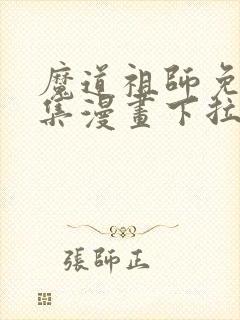 魔道祖師免
集漫畫下拉
張師正